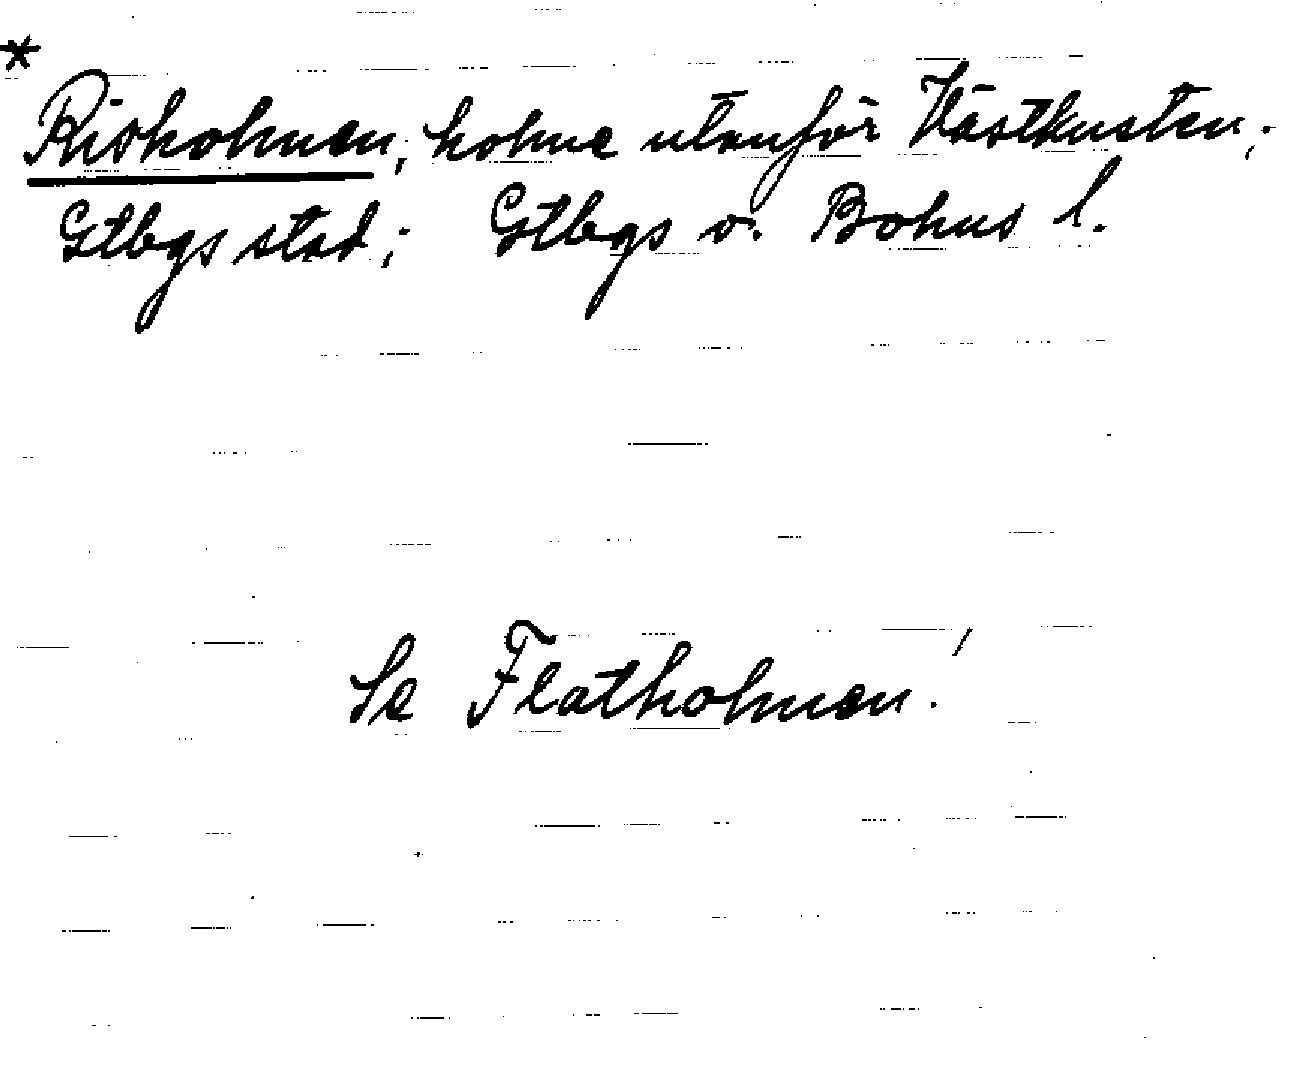 *
Risholmen, holme utanför Västkusten;
Gtbgs stad; Gtbgs o. Bohus l.
Se Flatholmen.